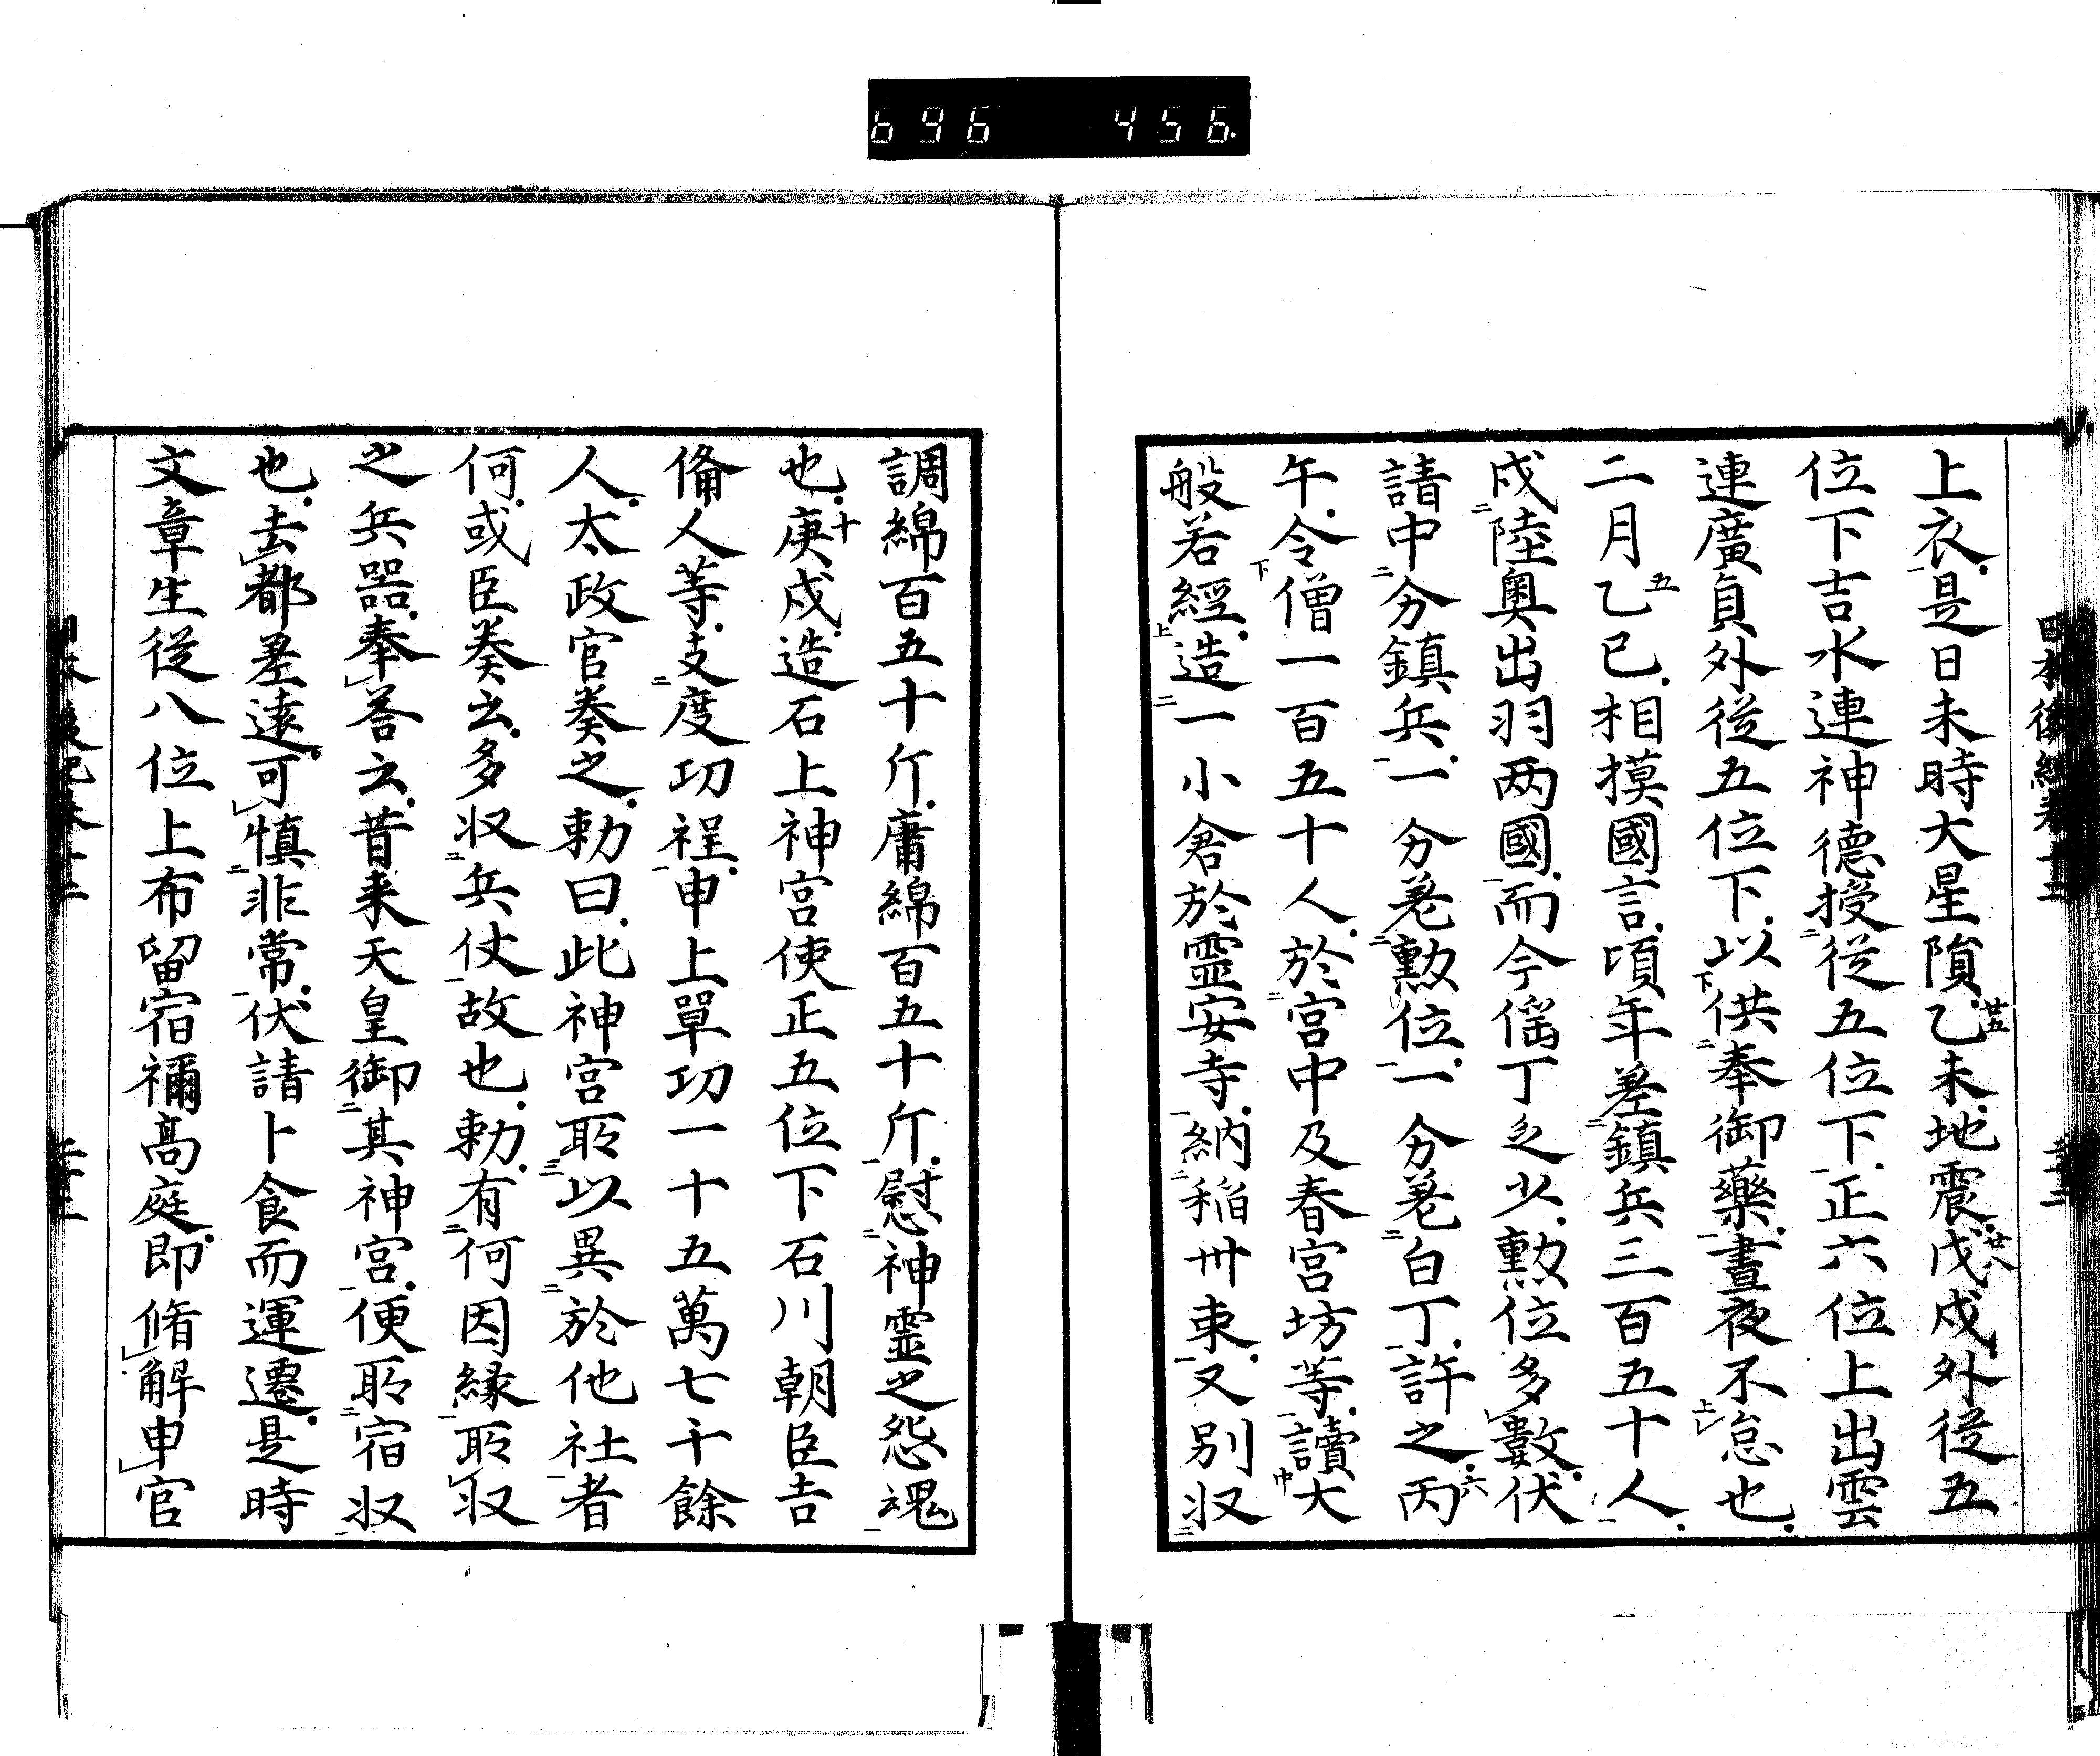 696 456
上衣是日未時大星隕乙未地震戊戌外從五
位下吉水連神德授從五位下正六位上出雲
連廣貞外從五位下以供奉御藥晝夜不怠也
二月乙巳相摸國言頃年差鎮兵三百五十人
戍陸奥出羽两國而今徭丁乏少勲位多數伏
請中分鎮兵一分差勲位一分差白丁許之丙
午令僧一百五十人於宮中及春宮坊等讀大
般若經造一小倉於霊安寺納稲卅束又別収
調綿百五十斤庸綿百五十斤慰神霊之怨魂
也庚戌造石上神宮使正五位下石川朝臣吉
備人等支度功程申上單功一十五萬七千餘
人太政官奏之勅曰此神宮所以異於他社者
何或臣奏云多収兵仗故也勅有何因縁所収
之兵器奉荅云昔来天皇御其神宮便所宿収
也去都差遠可慎非常伏請卜食而運遷是時
文章生從八位上布留宿禰高庭即脩解申官